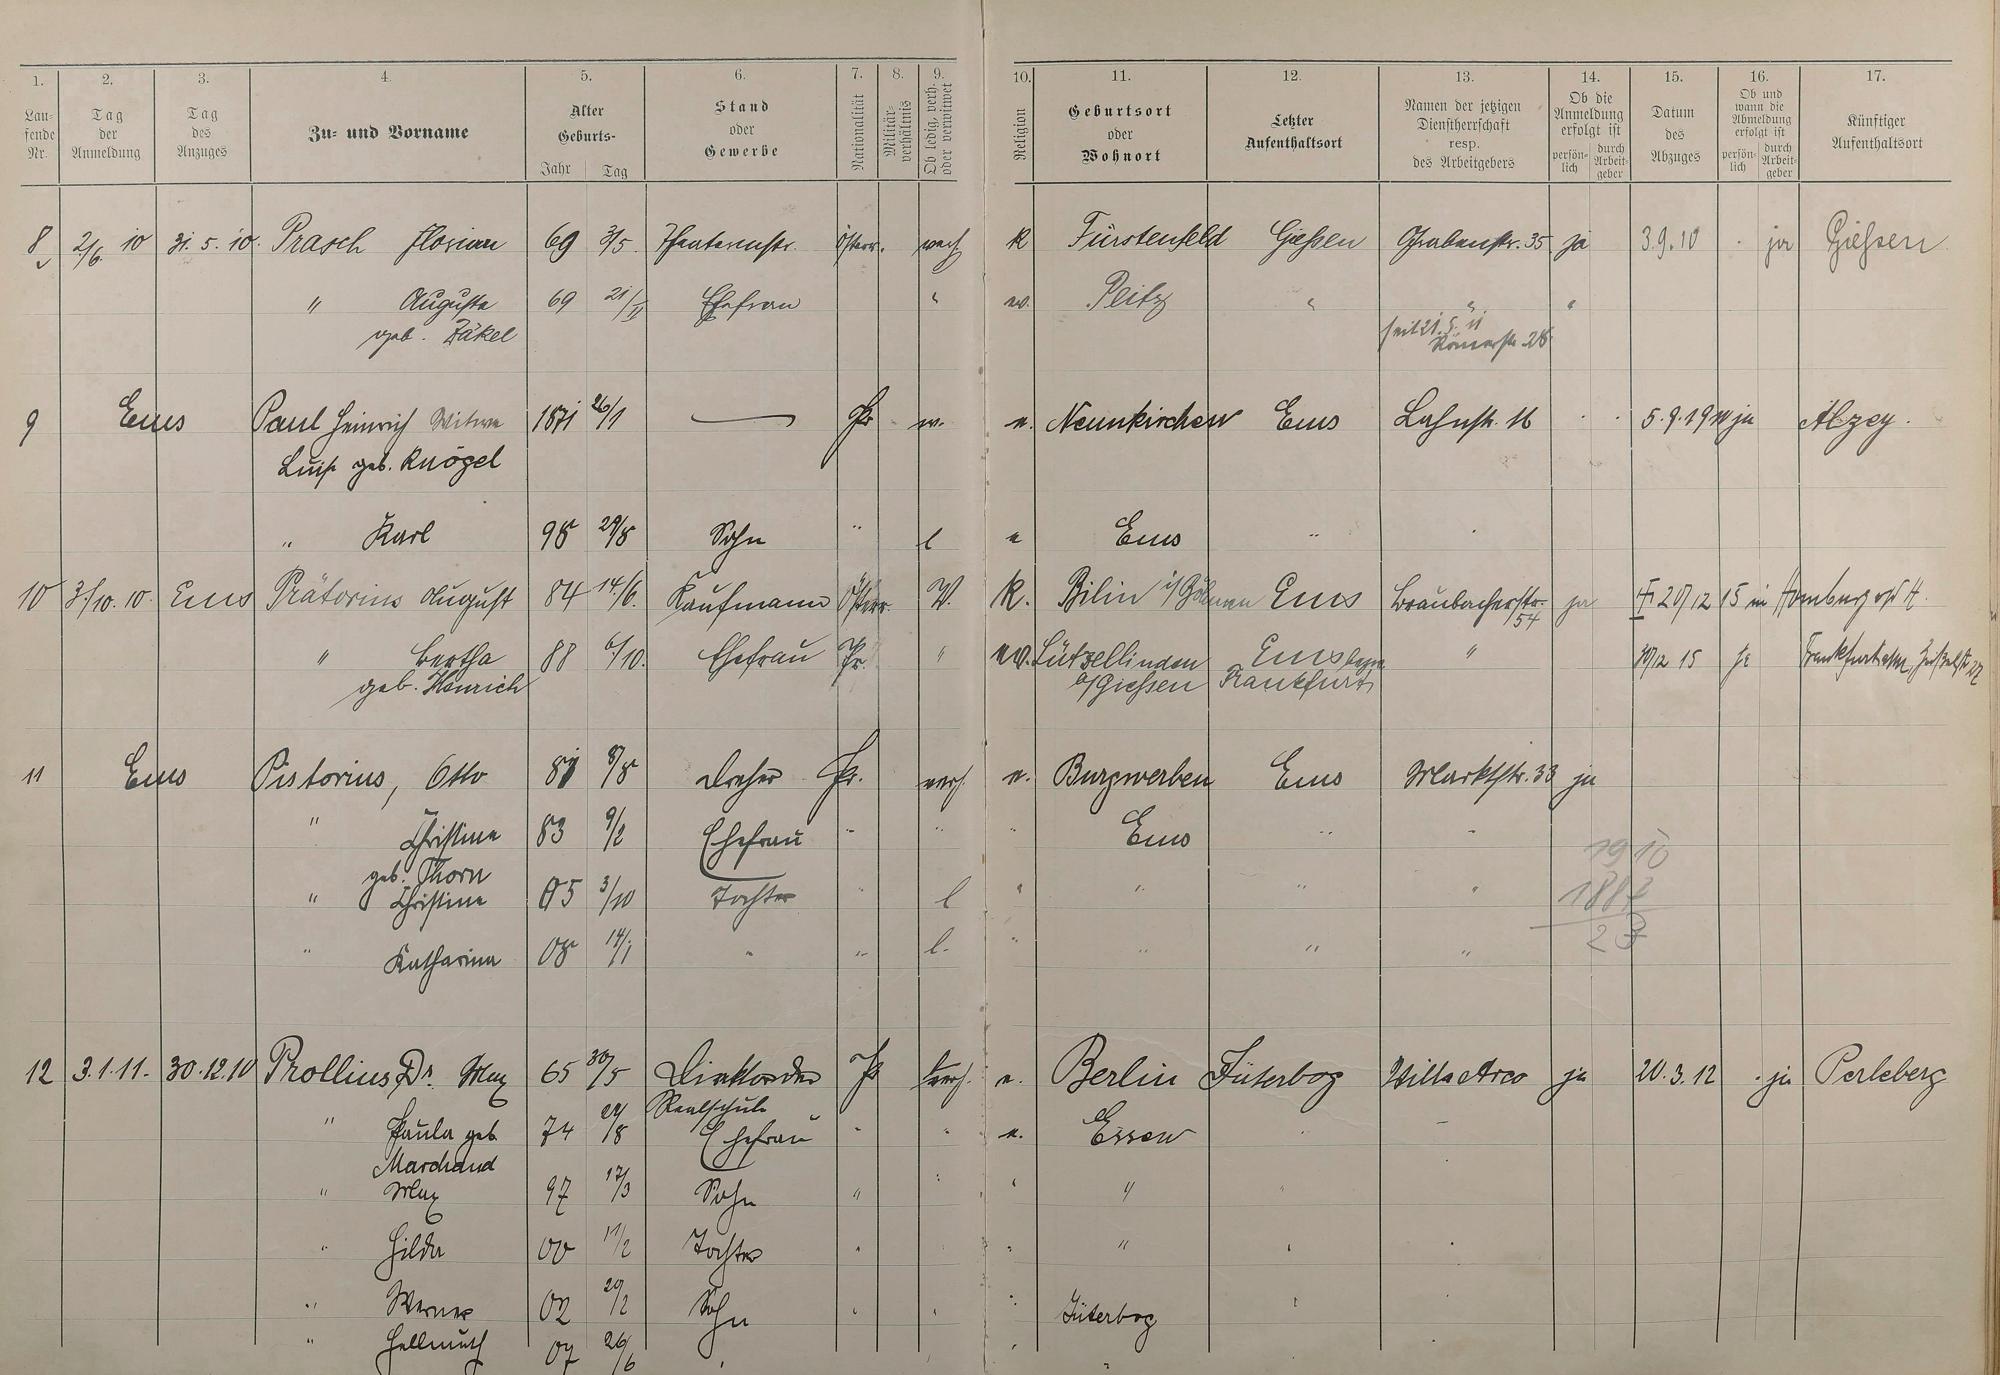 1. 2. 3. 4. 5. 6. 7. 8. 9. 10. 11. 12. 13. 14. 15. 16. 17.
Lau-
fende
Nr.
Tag
der
Anmeldung
Tag
des
Anzuges
Zu- und Vorname
Alter
Geburts-
Jahr Tag
Stand
oder
Gewerbe
Nationalität
Militär-
verhältnis
Ob ledig, verh.
oder verwitwet
Religion
Geburtsort
oder
Wohnort
Letzter
Aufenthaltsort
Namen der jetzigen
Dienstherrschaft
resp.
des Arbeitgebers
Ob die
Anmeldung
erfolgt ist
persön-
lich
durch
Arbeit-
geber
Datum
des
Abzuges
Ob und
wann die
Abmeldung
erfolgt ist
persön-
lich
durch
Arbeit-
geber
Künftiger
Aufenthaltsort
8 2/6. 10 31. 5. 10. Prasch Florian 69 3/5. österr. verh k Fürstenfeld Gießen Grabenstr. 35 ja 3.9.10 ja Gießen
" Auguste 69 21/ Ehefrau " ev. Peitz " " "
geb. Jäkel seit 21. 5. 11
Römerstr. 28
9 Ems Paul Heinrich Witwe 1871 26/1 Pr w. e. Neunkirchen Ems Lahnstr. 16 5.9.19 ja Alzey.
Luise geb. Knögel
" Karl 98 29/8 Sohn " l e Ems "
10 3./10. 10. Ems Prätorius August 84 14./6. Kaufmann Österr. V. K. Bilin i/Böhmen Ems Braubacherstr. ja 20/12 15 in Homburg v/d H.
54
" Bertha 88 6/10. Ehefrau Pr. " ev. Lützellinden Ems bezw. " 30/12 15 ja Frankfurt
geb. Henrich b/Giessen Frankfurt
11 Ems Pistorius, Otto 81 8/8 Dreher Pr. verh. e. Burgwerben Ems Marktstr. 33 ja
" Christine 83 9/2 Ehefrau " " " Ems " "
geb. Thorn 1910
" Christine 05 3/10 Tochter " l " " " " 1887
" Katharina 08 14/1 " " l. " " " " 23
12 3.1.11. 30.12.10 Prollius Dr. Max 65 30/5 Direktor der Pr verh. e. Berlin Jüterbog Villa Arco ja 20.3.12 ja Perleberg
Realschule
" Paula geb. 74 24/8 Ehefrau " " e. Essen "
Marchand
" Max 97 17/3 Sohn " " " "
" Hilda 00 11/2 Tochter " " "
" Werner 02 20/2 Sohn " " " Jüterbog
" Hellmuth 07 26/6 "